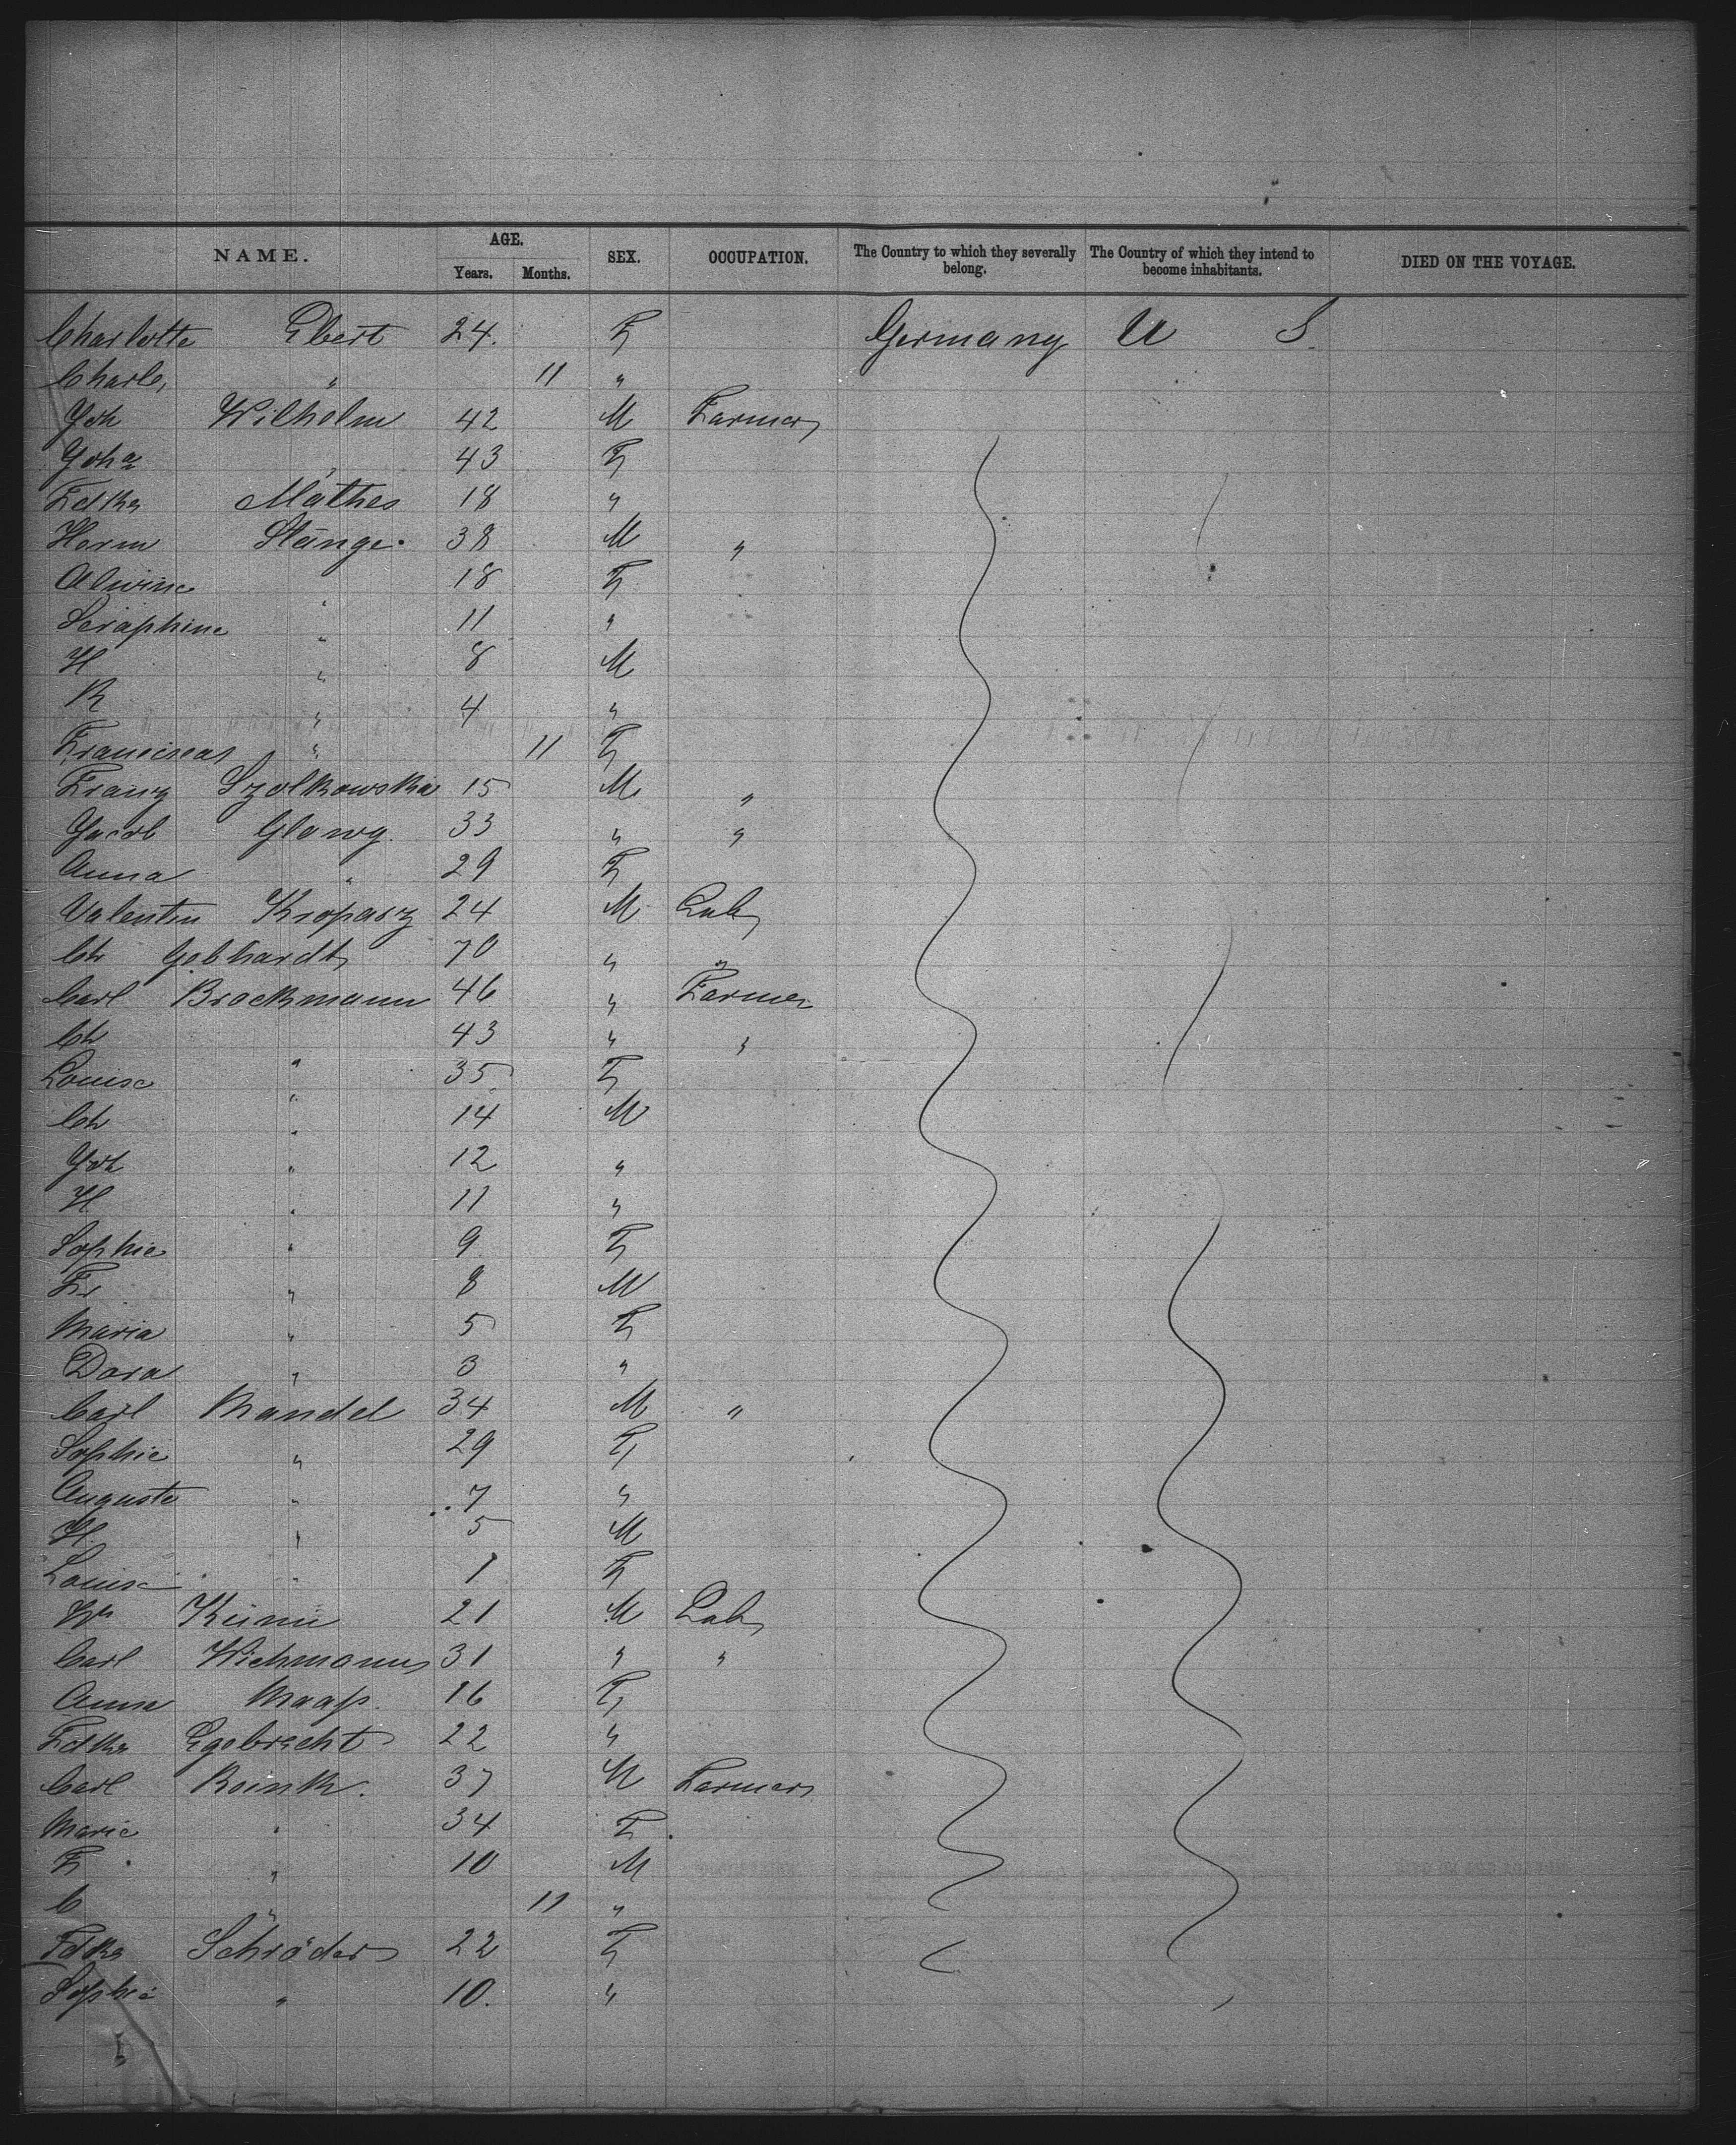 NAME. AGE. Years. Months. SEX. OCCUPATION. The Country to which they severally belong. The Country of which they intend to become inhabitants. DIED ON THE VOYAGE.
Charlotte Ebert 24. F Germany U S
Charls, " 11 "
Joh Wilhelm 42 M Farmer
Joha " 43 F
Fdke Mathes 18 "
Herm Stange. 38 M "
Alwine " 18 F
Seraphine " 11 "
H " 8 M
R " 4 "
Franciscas " 11 F
Franz Szolkowska 15 M "
Jacob Glowg. 33 " "
Anna " 29 F
Valentin Kroparz 24 M Lab
Ch Gebhardt 70 " "
Carl Brockmann 46 " Farmer
Ch " 43 " "
Louise " 35 F
Ch " 14 M
Joh " 12 "
H " 11 "
Sophie " 9 F
Fr " 8 M
Maria " 5 F
Dora " 3 "
Carl Mandel 34 M "
Sophie " 29 F
Auguste " 7 "
H " 5 M
Louise " 1 F
Wm 21 M Lab
Carl Wichmann 31 " "
Anna Maass. 16 F
Fdke Egebrecht 22 "
Carl Reink. 37 M Farmer
Marie " 34 F
F " 10 M
C " 11 "
Fdke Schröder 22 F
Sophie " 10. "